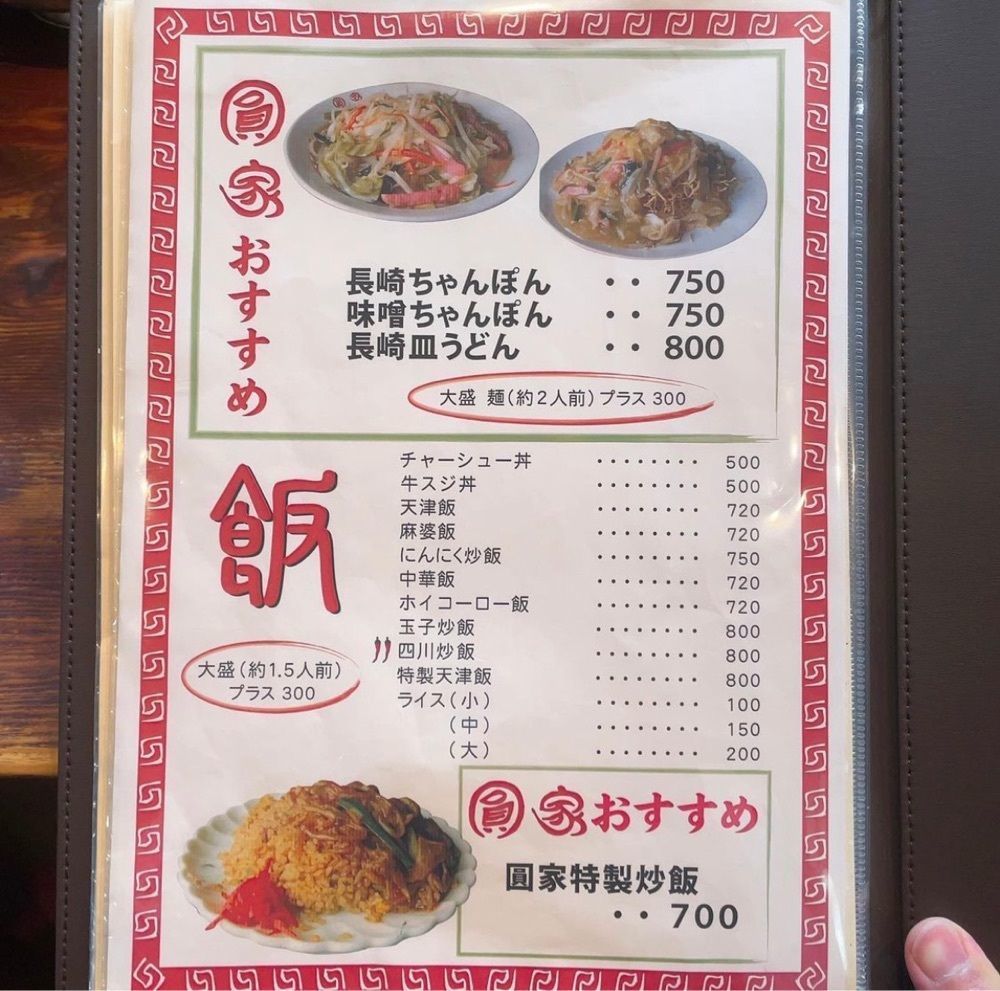 圓家おすすめ
長崎ちゃんぽん ・・ 750
味噌ちゃんぽん ・・ 750
長崎皿うどん ・・ 800
大盛 麺(約2人前)プラス 300
飯
大盛(約1.5人前)
プラス 300
チャーシュー丼 ・・・・・・・・ 500
牛スジ丼 ・・・・・・・・ 500
天津飯 ・・・・・・・・ 720
麻婆飯 ・・・・・・・・ 720
にんにく炒飯 ・・・・・・・・ 750
中華飯 ・・・・・・・・ 720
ホイコーロー飯 ・・・・・・・・ 720
玉子炒飯 ・・・・・・・・ 800
四川炒飯 ・・・・・・・・ 800
特製天津飯 ・・・・・・・・ 800
ライス(小) ・・・・・・・・ 100
(中) ・・・・・・・・ 150
(大) ・・・・・・・・ 200
圓家おすすめ
圓家特製炒飯
・・700